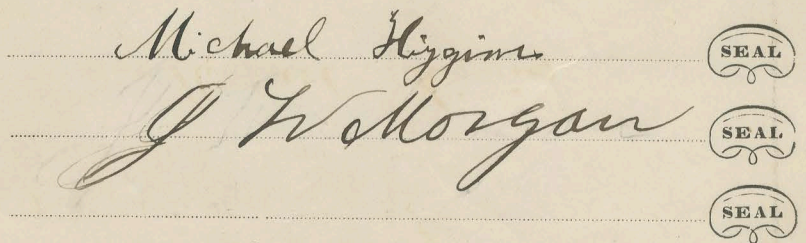 Michael Higgins SEAL
J W Morgan SEAL
SEAL